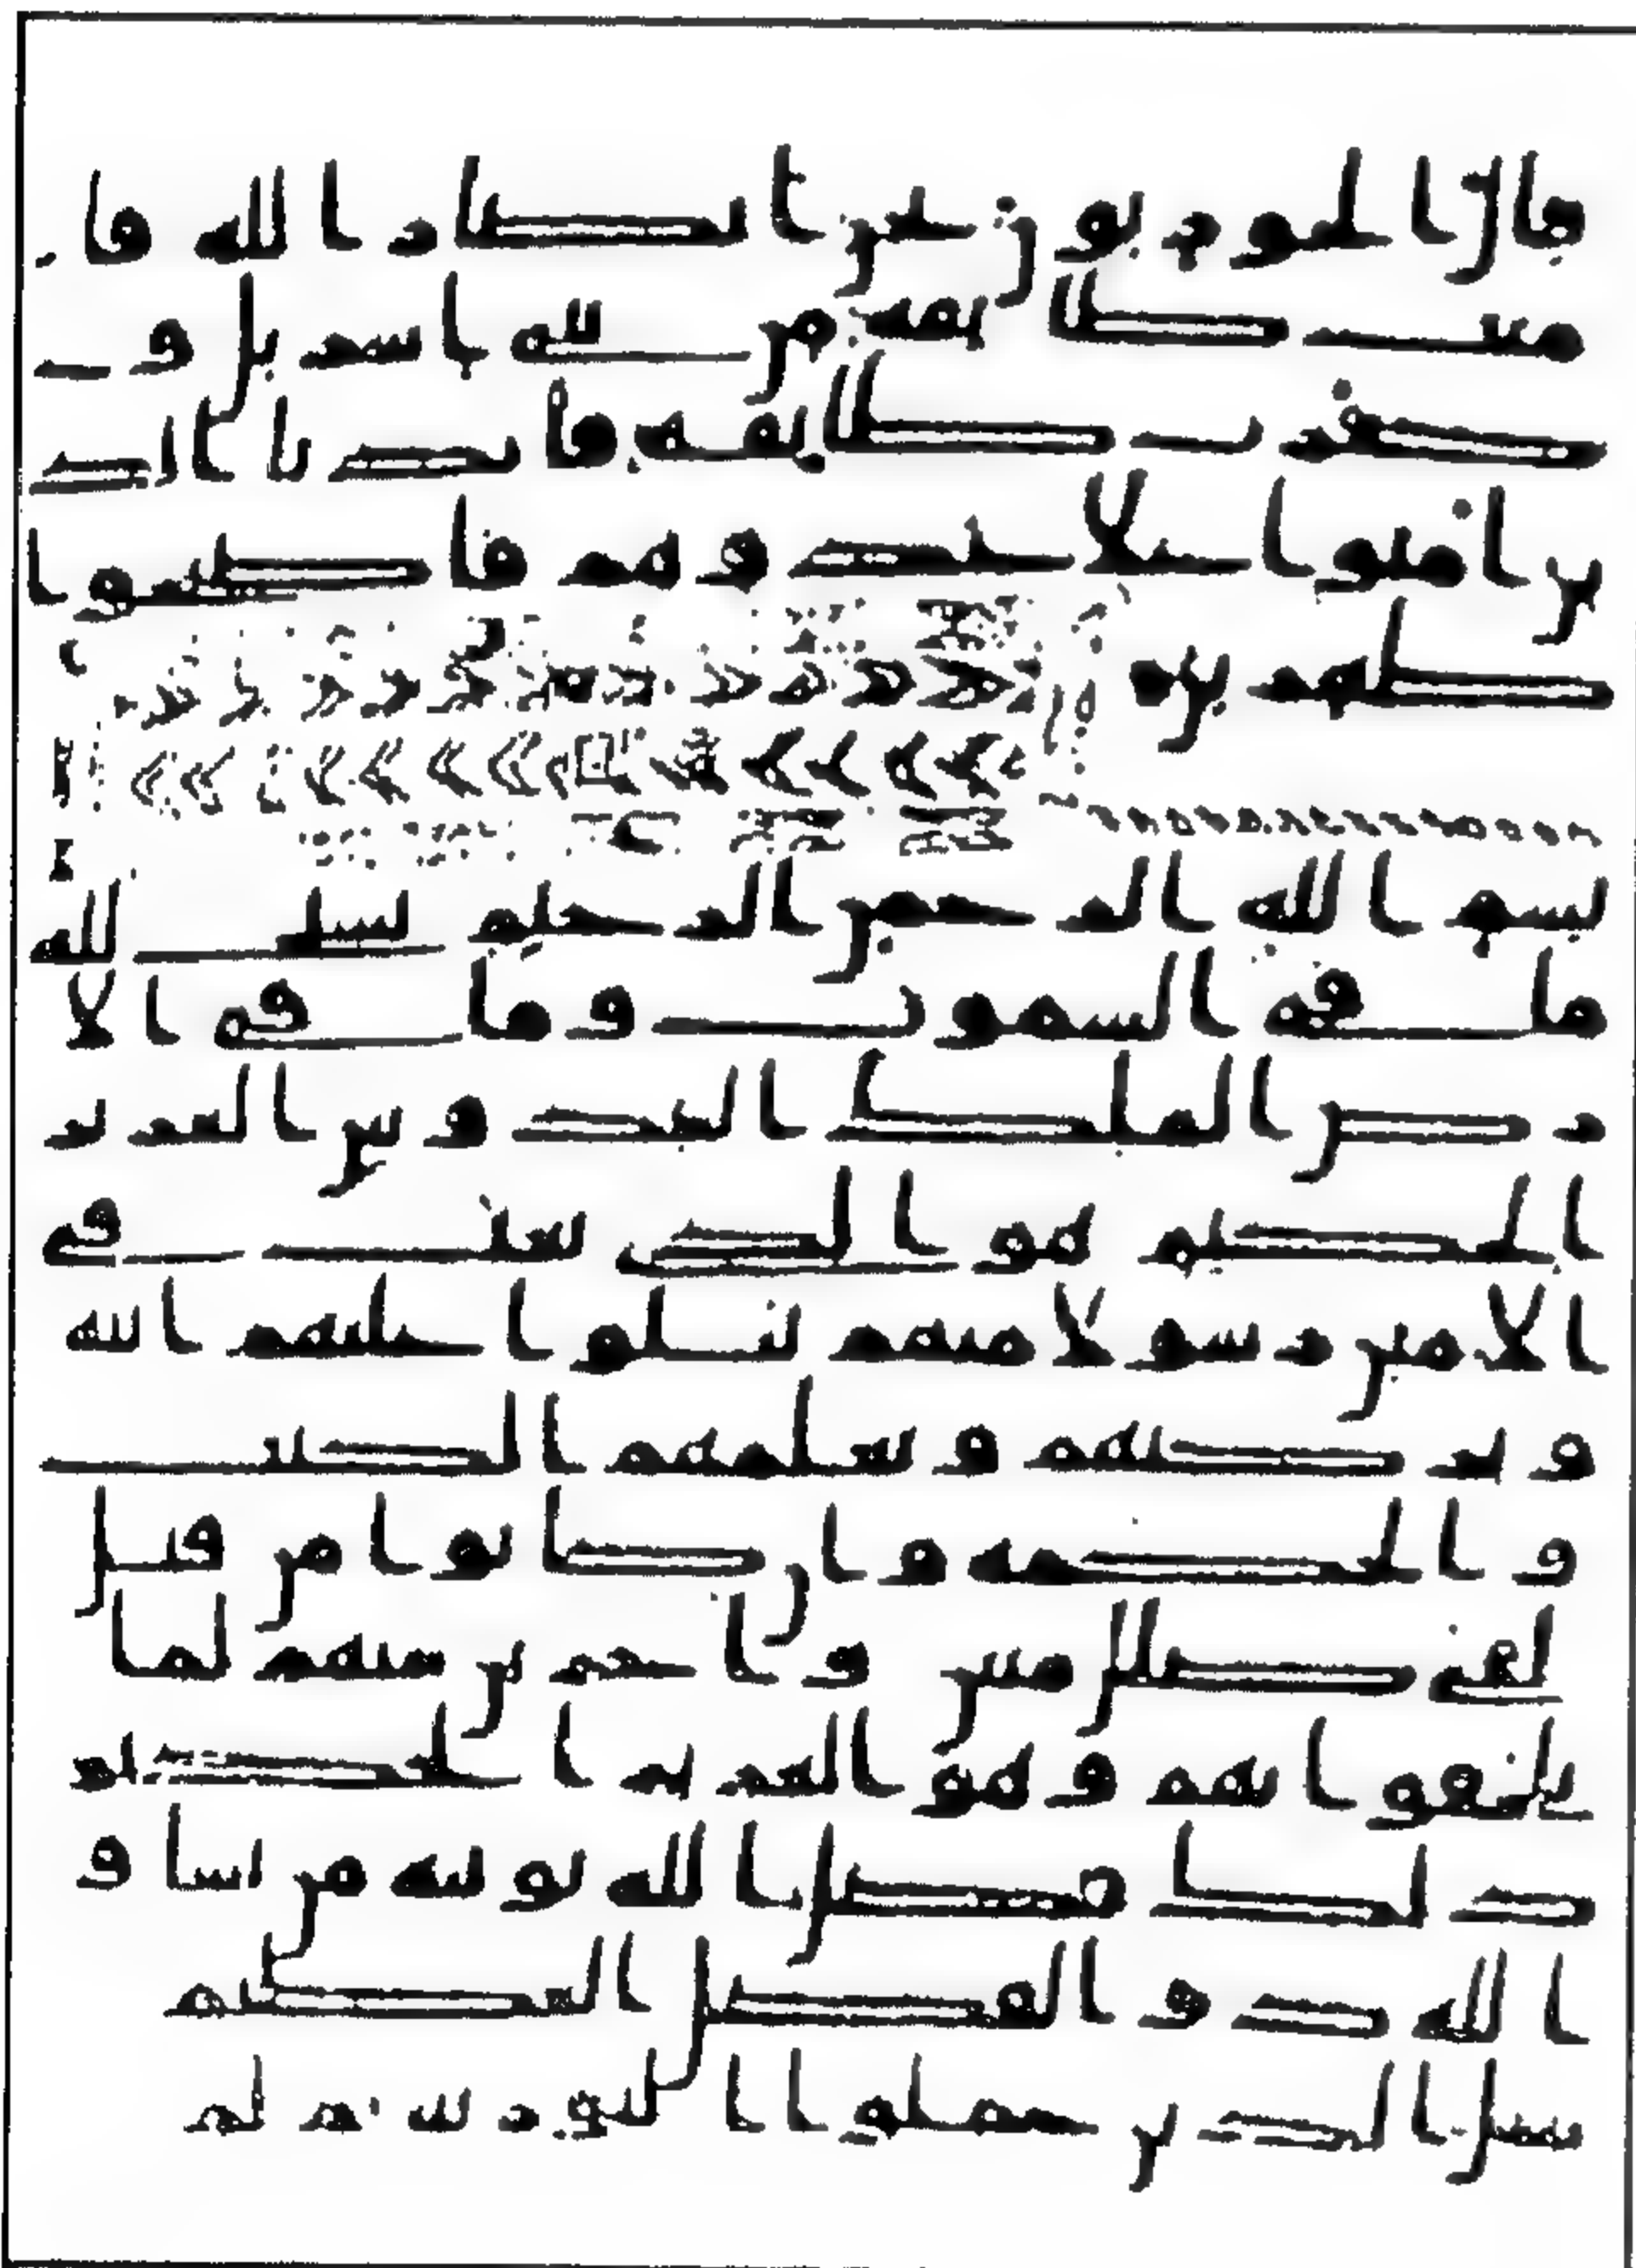 قال الحواريون نحن انصار الله فا
منت طايفه من بني اسريل و
كفرت طايفه فايدنا الذ
ين امنوا على عدوهم فاصبحوا
ظهرين
بسم الله الرحمن الرحيم يسبح لله
ما في السموت وما في الا
رض الملك القدوس العزيز
الحكيم هو الذي بعث في
الامين رسولا منهم يتلوا عليهم ايته
ويزكيهم ويعلمهم الكتب
والحكمه وان كانوا من قبل
لفي ضلل مبين واخرين منهم لما
يلحقوا بهم وهو العزيز الحكيم
ذلك فضل الله يوتيه من يشا و
الله ذو الفضل العظيم
مثل الذين حملوا التوريه ثم لم